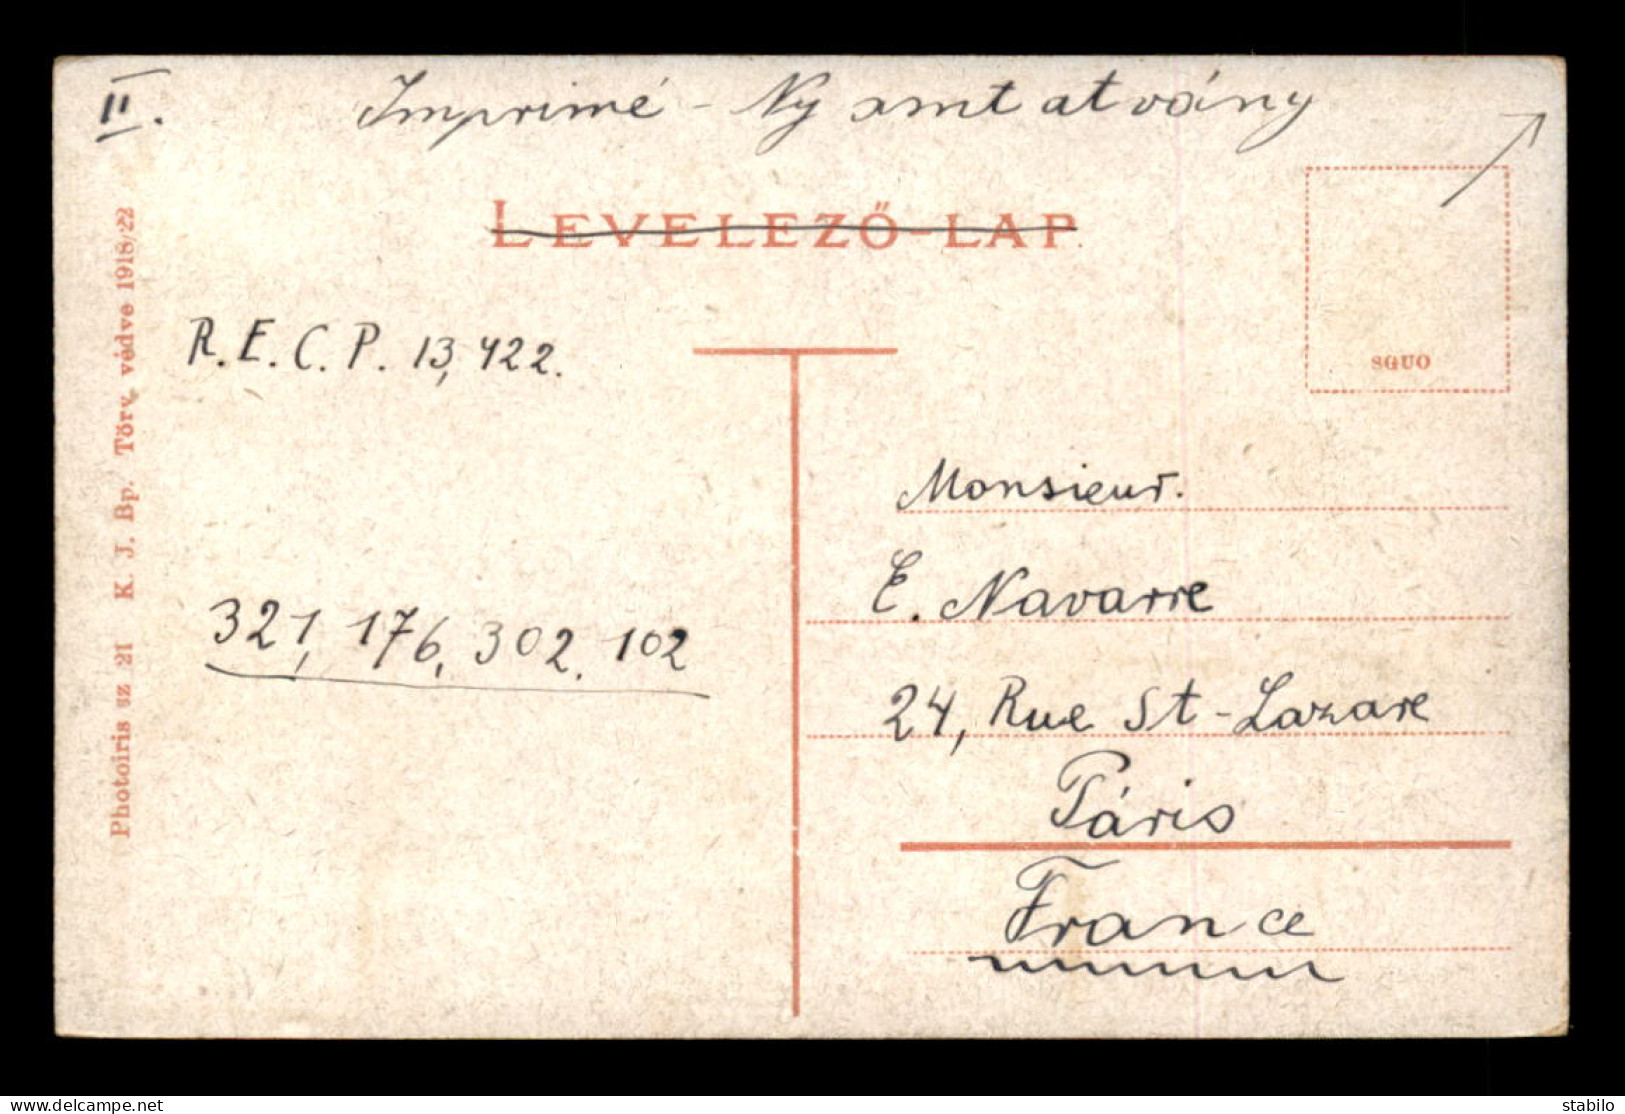 II.
Imprimé - Nyomtatvány
LEVELEZŐ-LAP
SGUO
R.E.C.P. 13,422.
321, 176, 302. 102
Photoiris sz 21 K. J. Bp. Törv. védve 1918/22
Monsieur.
E. Navarre
24, Rue St-Lazare
Páris
France
www.delcampe.net
stabilo